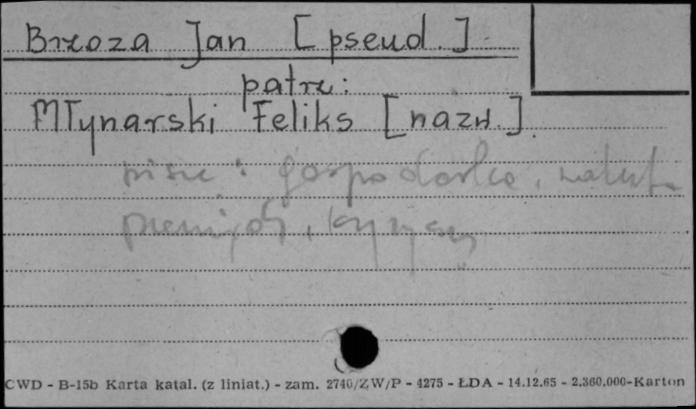 Brzoza Jan [pseud.]
patrz:
Młynarski Feliks [nazw.]
pisze: gospodarka, waluta
pieniądz, kryzysy
CWD - B-15b Karta katal. (z liniat.) - zam. 2740/ZW/P - 4275 - ŁDA - 14.12.65 - 2.360.000-Karton